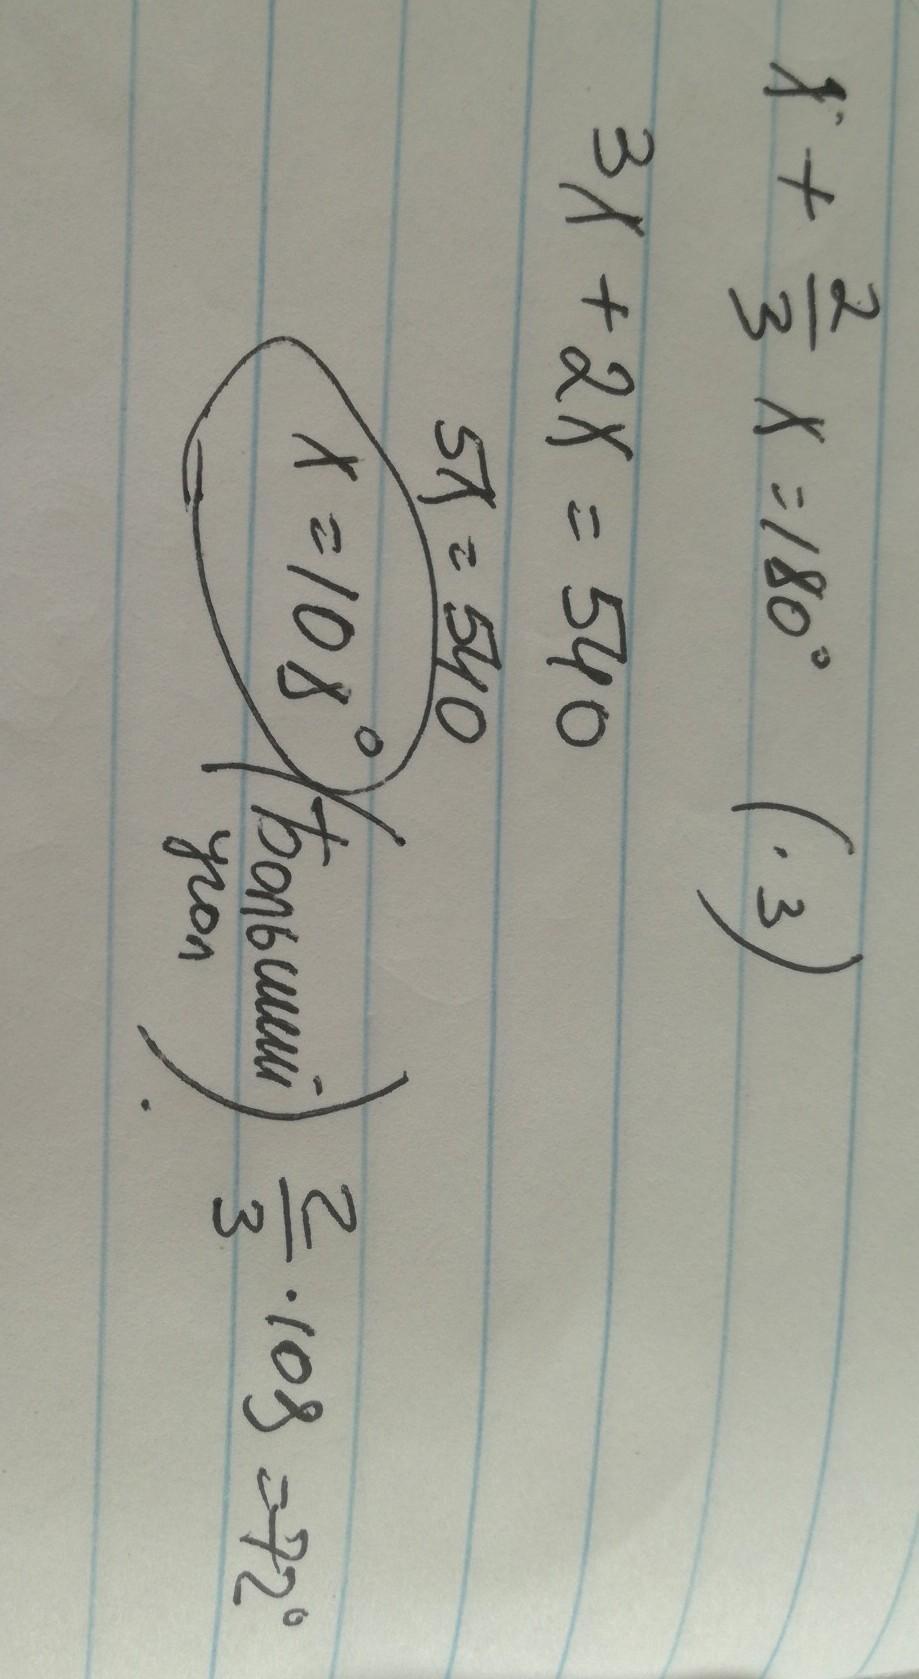 x + 2/3 x = 180° (·3)
3x + 2x = 540
5x = 540
x = 108° (больший угол). 2/3 · 108 = 72°